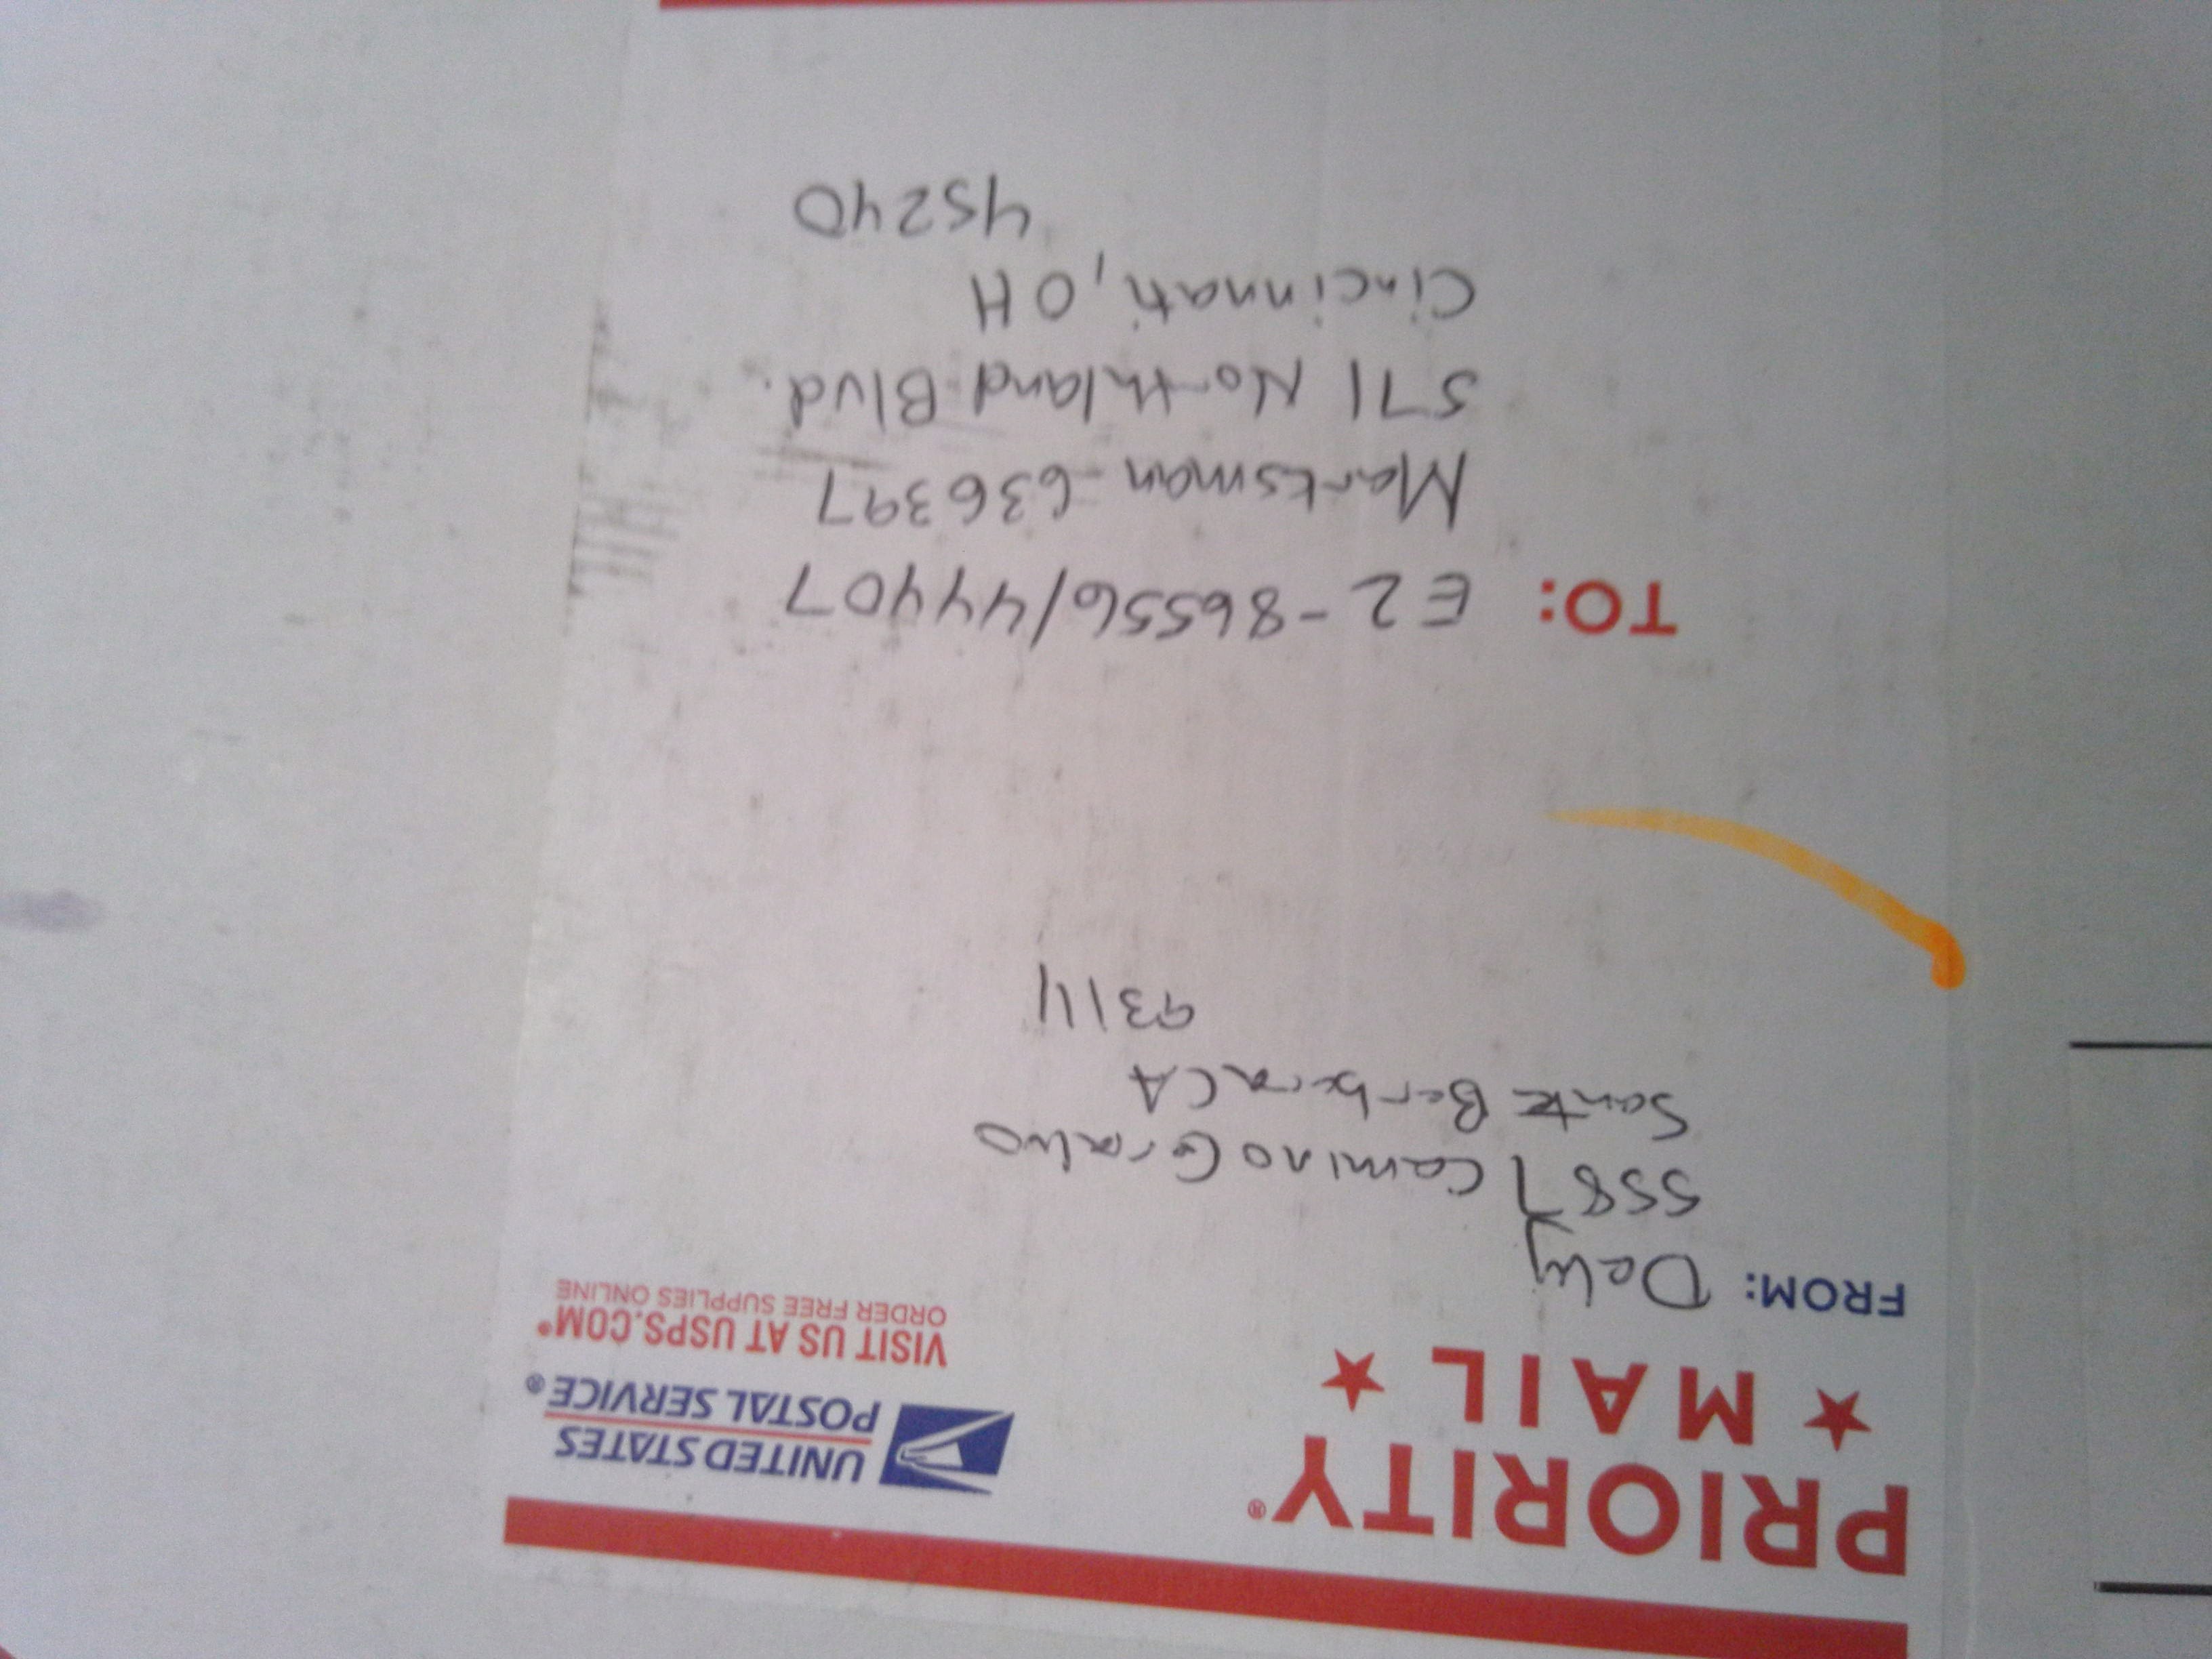 PRIORITY®
★ MAIL ★
UNITED STATES
POSTAL SERVICE®
VISIT US AT USPS.COM®
ORDER FREE SUPPLIES ONLINE
FROM: Daly
5587 Camino Cerralvo
Santa Barbara CA
93111
TO: E2-86556/44407
Marksman 636397
571 Northland Blvd.
Cincinnati, OH
45240